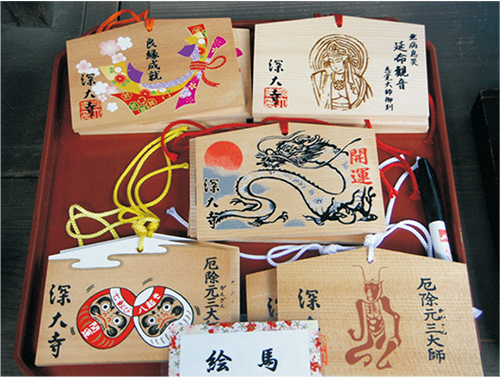 良縁成就
深大寺
無病息災
延命観音
慈覚大師御刻
深大寺
開運
深大寺
厄除元三大
八起き
開運
深大寺
厄除元三大師
深
絵馬